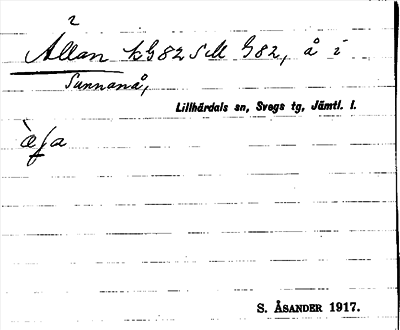 2
Ållan kG82 SM G82, å i
Sunnanå,
Lillhärdals sn, Svegs tg, Jämtl. l.
S. ÅSANDER 1917.